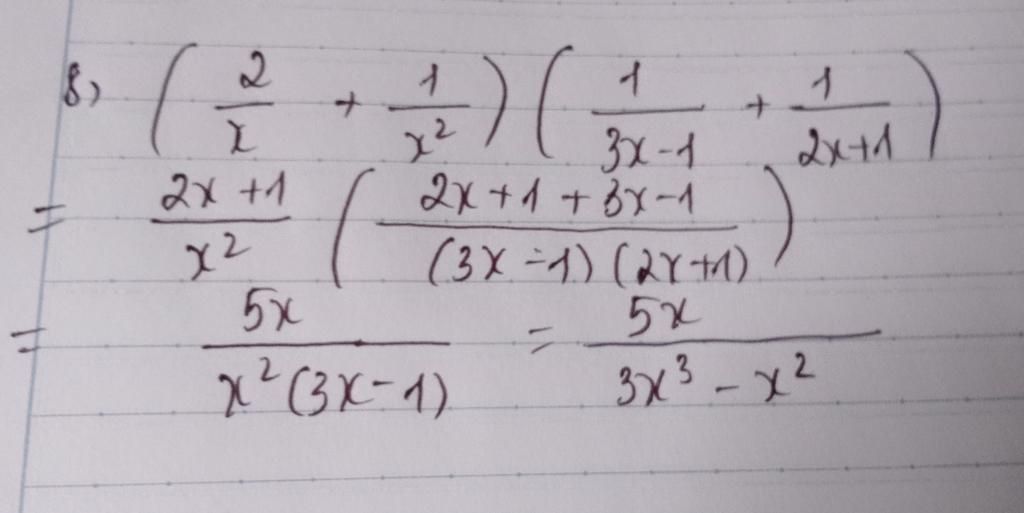 8) (2/x + 1/x²) (1/(3x-1) + 1/(2x+1))
= (2x+1)/x² ((2x+1+3x-1)/((3x-1)(2x+1)))
= 5x/(x²(3x-1)) = 5x/(3x³-x²)